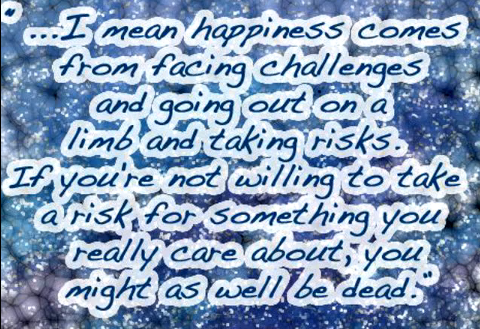 "...I mean happiness comes
from facing challenges
and going out on a
limb and taking risks.
If you're not willing to take
a risk for something you
really care about, you
might as well be dead."